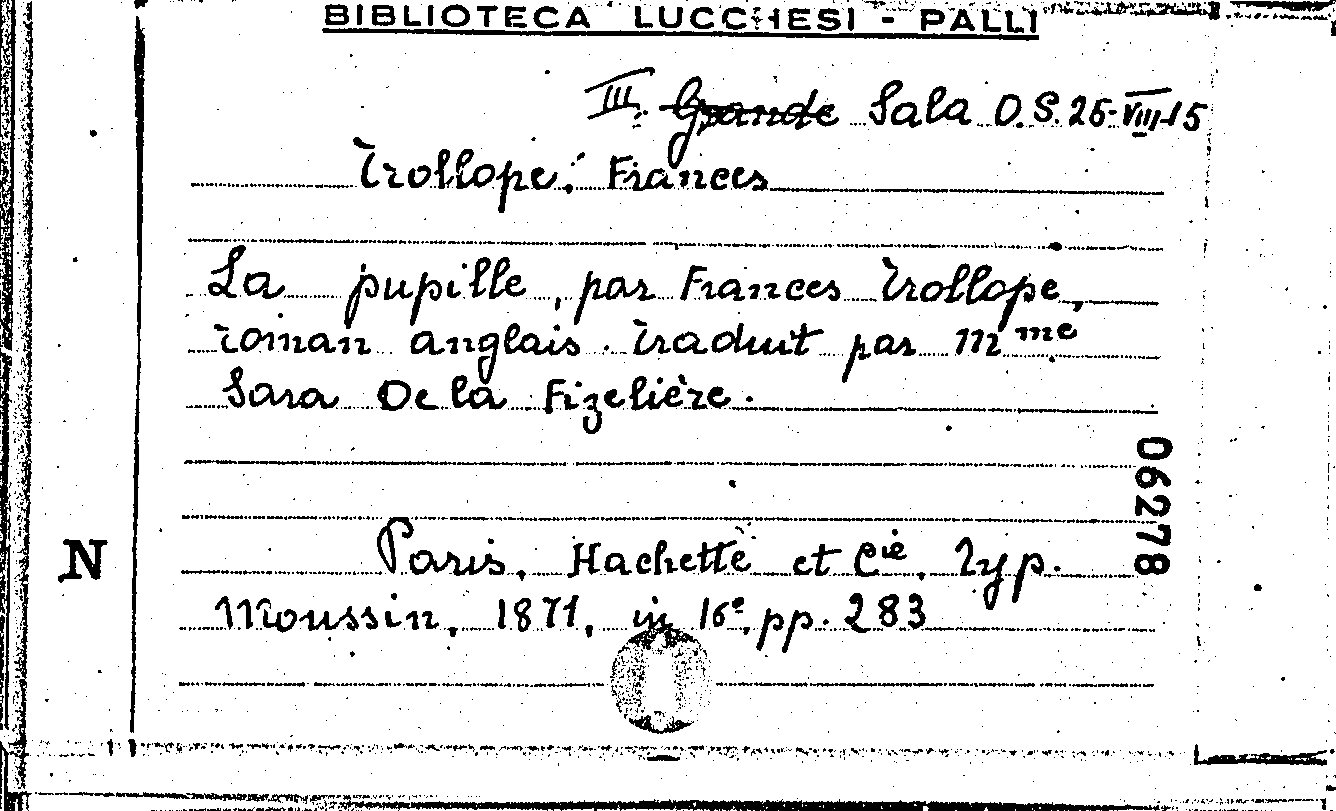 BIBLIOTECA LUCCHESI - PALLI
III. Grande Sala O.S. 25-VIII-15
Trollope, Frances
La pupille, par Frances Trollope,
roman anglais. traduit par Mme
Sara De la Fizelière.
06278
N
Paris, Hachette et Cie, Typ.
Moussin, 1871, in 16°, pp. 283